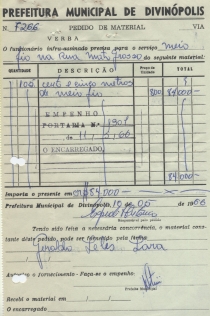 PREFEITURA MUNICIPAL DE DIVINÓPOLIS
N. 7266 PEDIDO DE MATERIAL VIA
VERBA
O funcionário infra-assinado precisa para o serviço meio
fio na Rua Mato Grosso do seguinte material:
QUANTIDADE DESCRIÇÃO Preço da Unidade TOTAL
105 cento e cinco metros 800 84000
de meio fio
EMPENHO
PORTARIA N.º 1901
O ENCARREGADO,
84.000
Importa o presente em Cr$ 84.000
Prefeitura Municipal de Divinópolis, 10 de 05 de 1966
Responsável pelo pedido
Tendo sido feita a necessária concorrência, o material cons-
tante dêste pedido, pode ser fornecido pela firma
Geraldo Teles Lara
Autorizo o fornecimento - Faça-se o empenho.
Prefeito Municipal
Recebi o material em / /
O encarregado